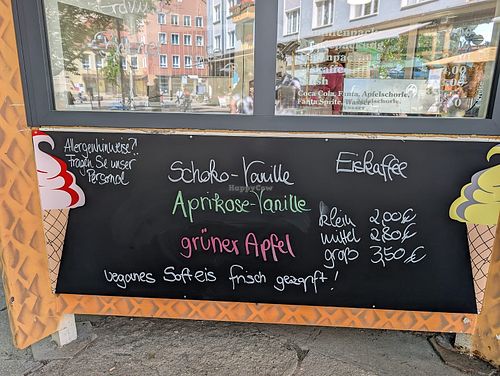 Coca Cola, Fanta, Apfelschorle,
Fanta Sprite, Wasser
Allergenhinweise?!
Fragen Sie unser
Personal
Schoko-Vanille
Aprikose-Vanille
grüner Apfel
veganes Softeis frisch gezapft!
Eiskaffee
klein 2,00€
mittel 2,80€
groß 3,50€
HappyCow